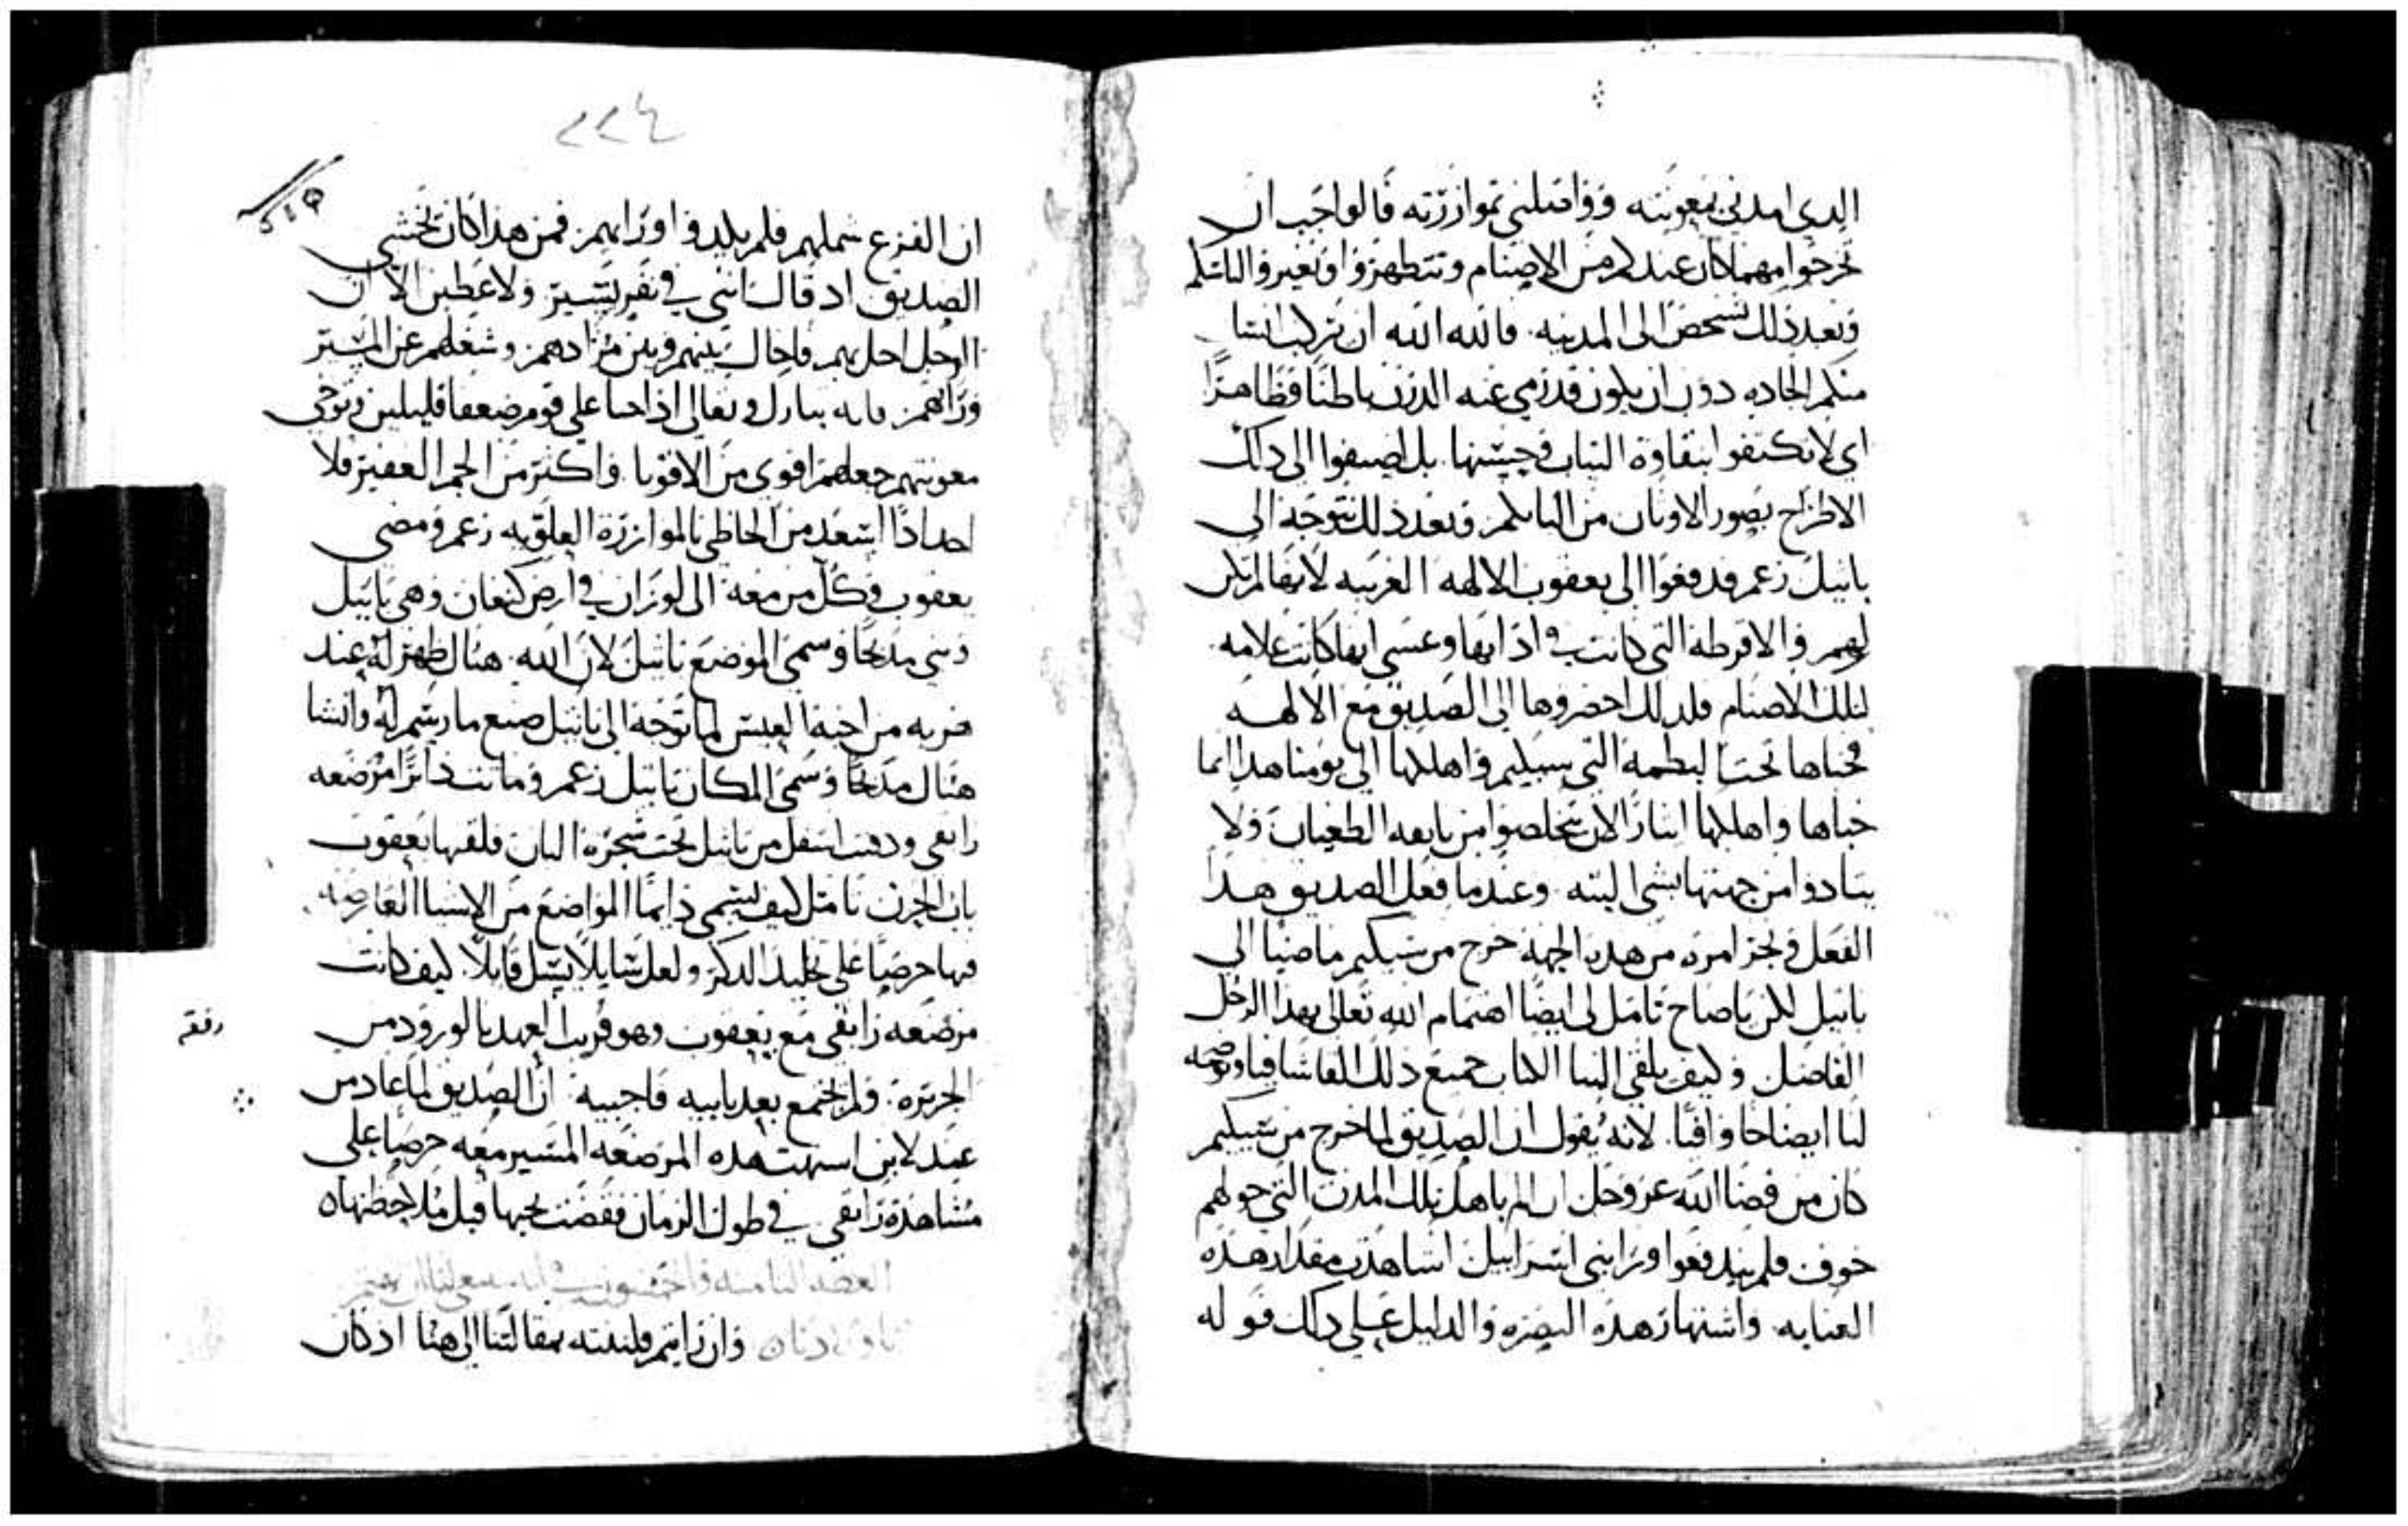 الدي امدني بمعونته وواصلني بموازرته قالواجب ان
تخرجوا مهما كان عندكم من الاصنام وتتطهروا وتغيروا لباسكم
وبعد ذلك نشخص الى المدينه. فالله الله ان يركب انسا
منكم الجاده دون ان يكون قد رمي عنه الدرن باطنًا وظاهرًا
اي لا تكتفوا بنقاوة التياب وحسنها. بل اضيفوا الى داك
الاطراح بصور الاوتان من البابكم وبعد ذلك نتوجه الى
باتيل زعم فدفعوا الى يعقوب الالهه الغريبه لانها لم تكن
لهم والاقرطه التي كانت في ادانها وعسى انها كانت علامه
لتلك الاصنام فلدلك احضروها الى الصديق مع الالهه
فخباها تحت البطمه التي بسيكيم واهلكها الى يومنا هدا انما
خباها واهلكها ايتارًا لان يتخلصوا من تابعه الطغيان ولا
يتادوا من جهتها بشي البته. وعندما فعل الصديق هدا
الفعل ونجز امره من هده الجهة خرج من سيكيم ماضيًا الى
باتيل لكن ياصاح تامل لى ايضًا اهتمام الله تعالى بهدا الرجل
الفاضل وكيف يلقي الينا الكتاب جميع دلك القاشافيا ويوضحه
لنا ايضاحًا وافيًا. لانه يقول ان الصديق لما خرج من سيكيم
كان من قضا الله عز وجل ان الم باهل تلك المدن التي حولهم
خوف فلم يندفعوا ورا بني اسراييل اشاهدت مقدار هده
العنايه. واشتهار هده النصره والدليل على داك قوله
٢٢٤
٥١٩
ان الفزع شملهم فلم يلدوا اوراهم. فمن هدا كان تخشى
الصديق اد قال انني في نفر يسير ولاعطبن الا ان
الوجل احل بهم فاحال بينهم وبين مرادهم. وشغلهم عن المسير
وراهم. فانه تبارك وتعالى ادا حبا على قوم ضعفا قليلين وتوخى
معونتهم جعلهم اقوى من الاقويا. واكتر من الجم الغفير فلا
احد ادًا اسعد من الحاظي بالموازرة العلويه زعم ومضى
يعقوب وكل من معه الى لوزان في ارض كنعان وهي باتيل
وبنى مدبحًا وسمى الموضع باتيل لان الله هناك ظهر له عند
هربه من اخيه العيس لما توجه الى باتيل صنع ما رسم له وانشا
هناك مدبحًا وسمى المكان باتيل زعم وماتت دابرًا مرضعه
رابقى ودفنت اسفل من باتيل تحت شجرة البان فلقبها يعقوب
بان الحزن تامل كيف يسمى دايمًا المواضع من الاشيا العارضه
فيها حرصًا على تخليد الدكر ولعل سايلًا يسل قايلًا. كيف كانت
مرضعه رابقى مع يعقوب وهو قريب العهد بالورود من
الجزيره. ولم يجتمع بعد بابيه فاجيبه ان الصديق لما عاد من
رفقه
عند لابن اشتهت هده المرضعه المسير معه حرصًا على
مشاهدة رابقى في طول الزمان فقضت نحبها قبل ملاحظتها
العظه التامنه والخمسون في انه ينبغي لنا ان
وان رايتم فلننته بمقالتنا الى هنا اد كان